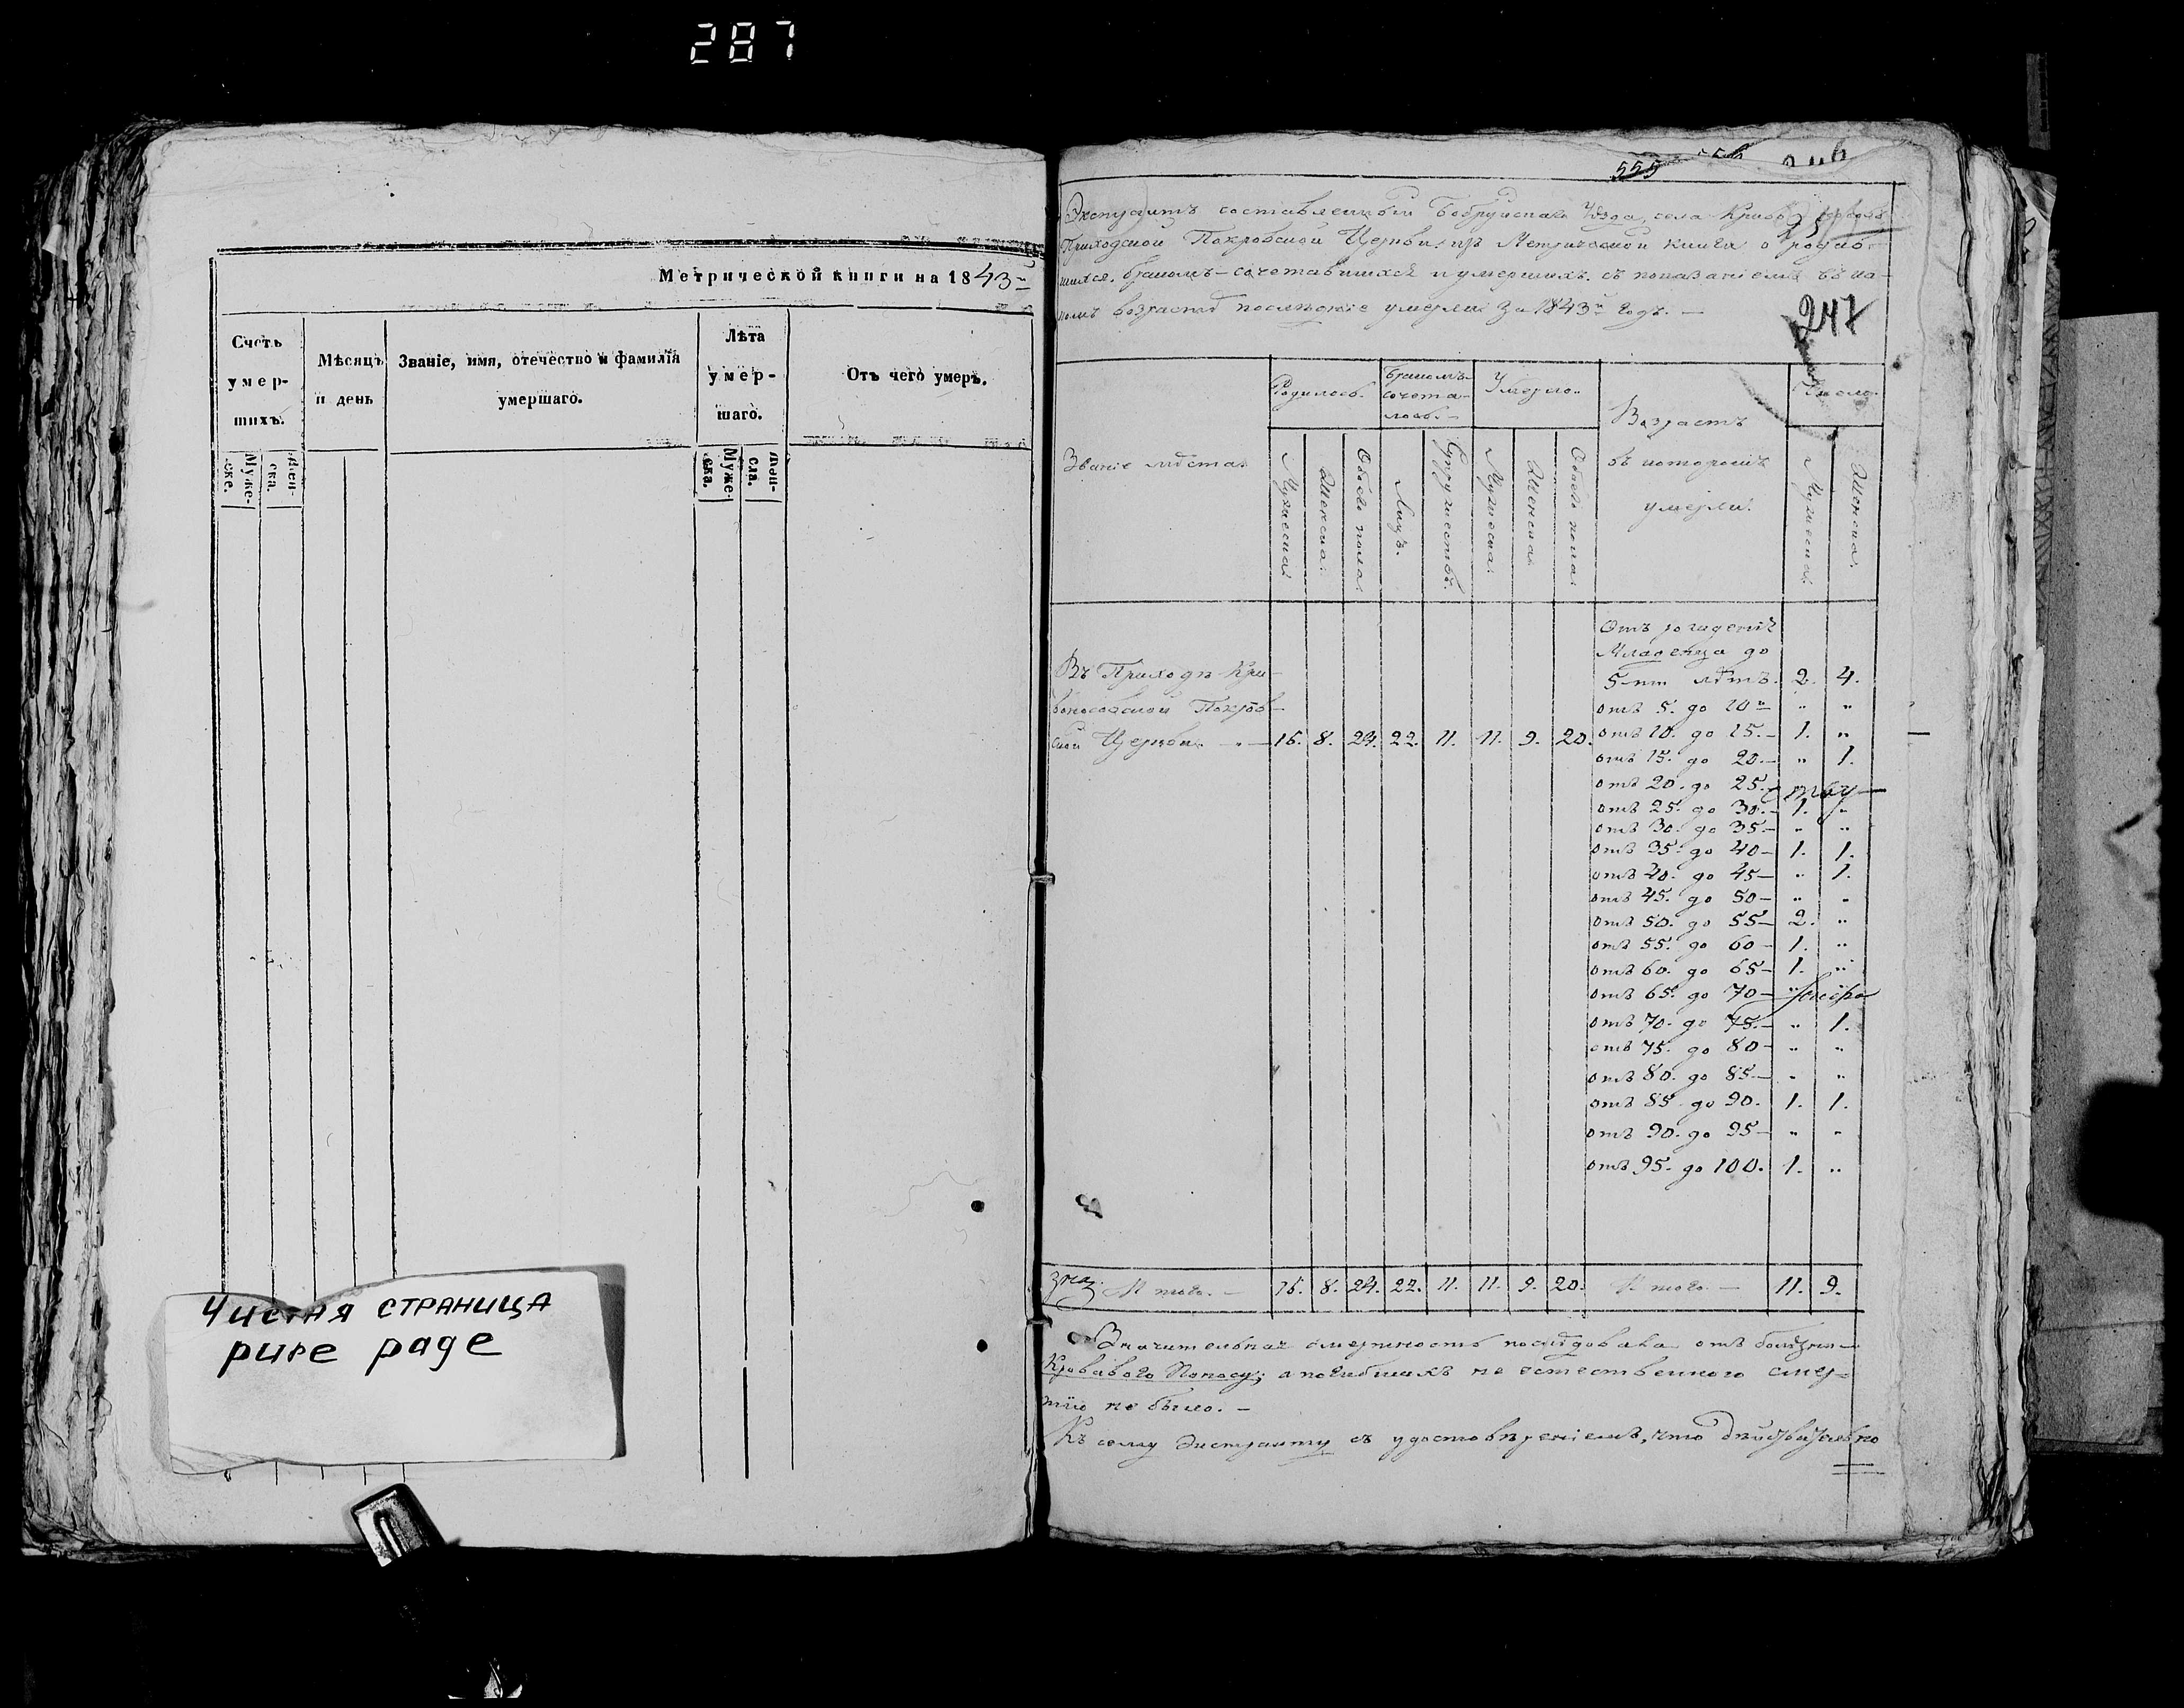 287
Метрической книги на 1843й
Счетъ умер-шихъ.
Мѣсяцъ и день
Званіе, имя, отечество и фамилія умершаго.
Лѣта умер-шаго.
Отъ чего умеръ.
Муже-ска.
Жен-ска.
Муже-ска.
Жен-ска.
Чистая страница
pure page
555
247
Экстрактъ составленный Бобруйскаго Уѣзда, села
Приходской Покровской Церкви, изъ Метрической книги о родив-
шихся, бракомъ-сочетавшихся и умершихъ, съ показаніемъ въ ка-
комъ возрастѣ послѣдніе умерли за 1843й годъ. —
Званіе мѣста
Родилось.
Бракомъ-сочета-лось.
Умерло.
Возрастъ въ которомъ умерли.
Число.
Мужеска.
Женска.
Обоего пола.
Лицъ.
Супружествъ.
Мужеска.
Женска.
Обоего пола.
Мужеска.
Женска.
Въ Приходѣ Кри-
воносовской Покров-
ской Церкви. 16. 8. 24. 22. 11. 11. 9. 20.
Отъ рожденія
Младенца до
5-ти лѣтъ. 2. 4.
отъ 5. до 10 " "
отъ 10. до 15. 1. "
отъ 15. до 20. " 1.
отъ 20. до 25.
отъ 25. до 30. 1. "
отъ 30. до 35. " "
отъ 35. до 40 1. 1.
отъ 40. до 45 " 1.
отъ 45. до 50 " "
отъ 50. до 55 2. "
отъ 55. до 60 1. "
отъ 60. до 65 1. "
отъ 65. до 70
отъ 70. до 75. " 1.
отъ 75. до 80 " "
отъ 80. до 85. " "
отъ 85. до 90. 1. 1.
отъ 90. до 95 " "
отъ 95. до 100. 1. "
Итого. — 16. 8. 24. 22. 11. 11. 9. 20. Итого. — 11. 9.
Значительная смертность послѣдовала отъ болѣзни
Кроваваго Поносу; а погибшихъ не естественною смер-
тію не было. —
Къ сему Экстракту съ удостовѣреніемъ, что дѣйствительно